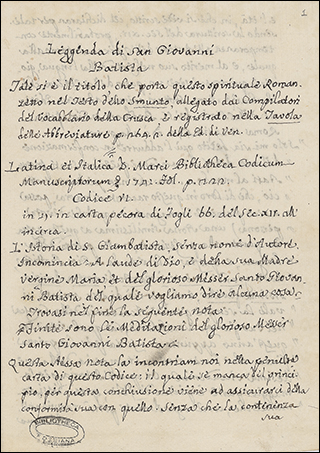 1
Leggenda di San Giovanni
Batista
Tale si è il titolo, che porta questo spirituale Roman-
zetto nel Testo dello Smunto, allegato dai Compilatori
del Vocabolario della Crusca e registrato nella Tavola
delle Abbreviature p. n. della Ed. di Ven.
Latina et Italica D. Marci Bibliotheca Codicum
Manuscriptorum
Codice VI.
in in carta pecora di fogli 66. del sec. XIV. all'
incirca.
L'Istoria di S. Giambatista, senza nome d'Autore.
Incomincia: A laude di Dio, e della sua Madre
Vergine Maria et del glorioso Messer Santo Giovan-
ni Batista del quale vogliamo dire alcuna cosa.
Trovasi nel fine la seguente nota
Finite sono le Meditazioni del glorioso Messer
Santo Giovanni Batista
Questa stessa nota la incontriam noi nella penultima
carta di questo Codice: il quale se manca del princi-
pio, per questa conchiusione viene ad assicurarsi della
conformità sua con quello. Senza che la continenza
sua
BIBLIOTHECA